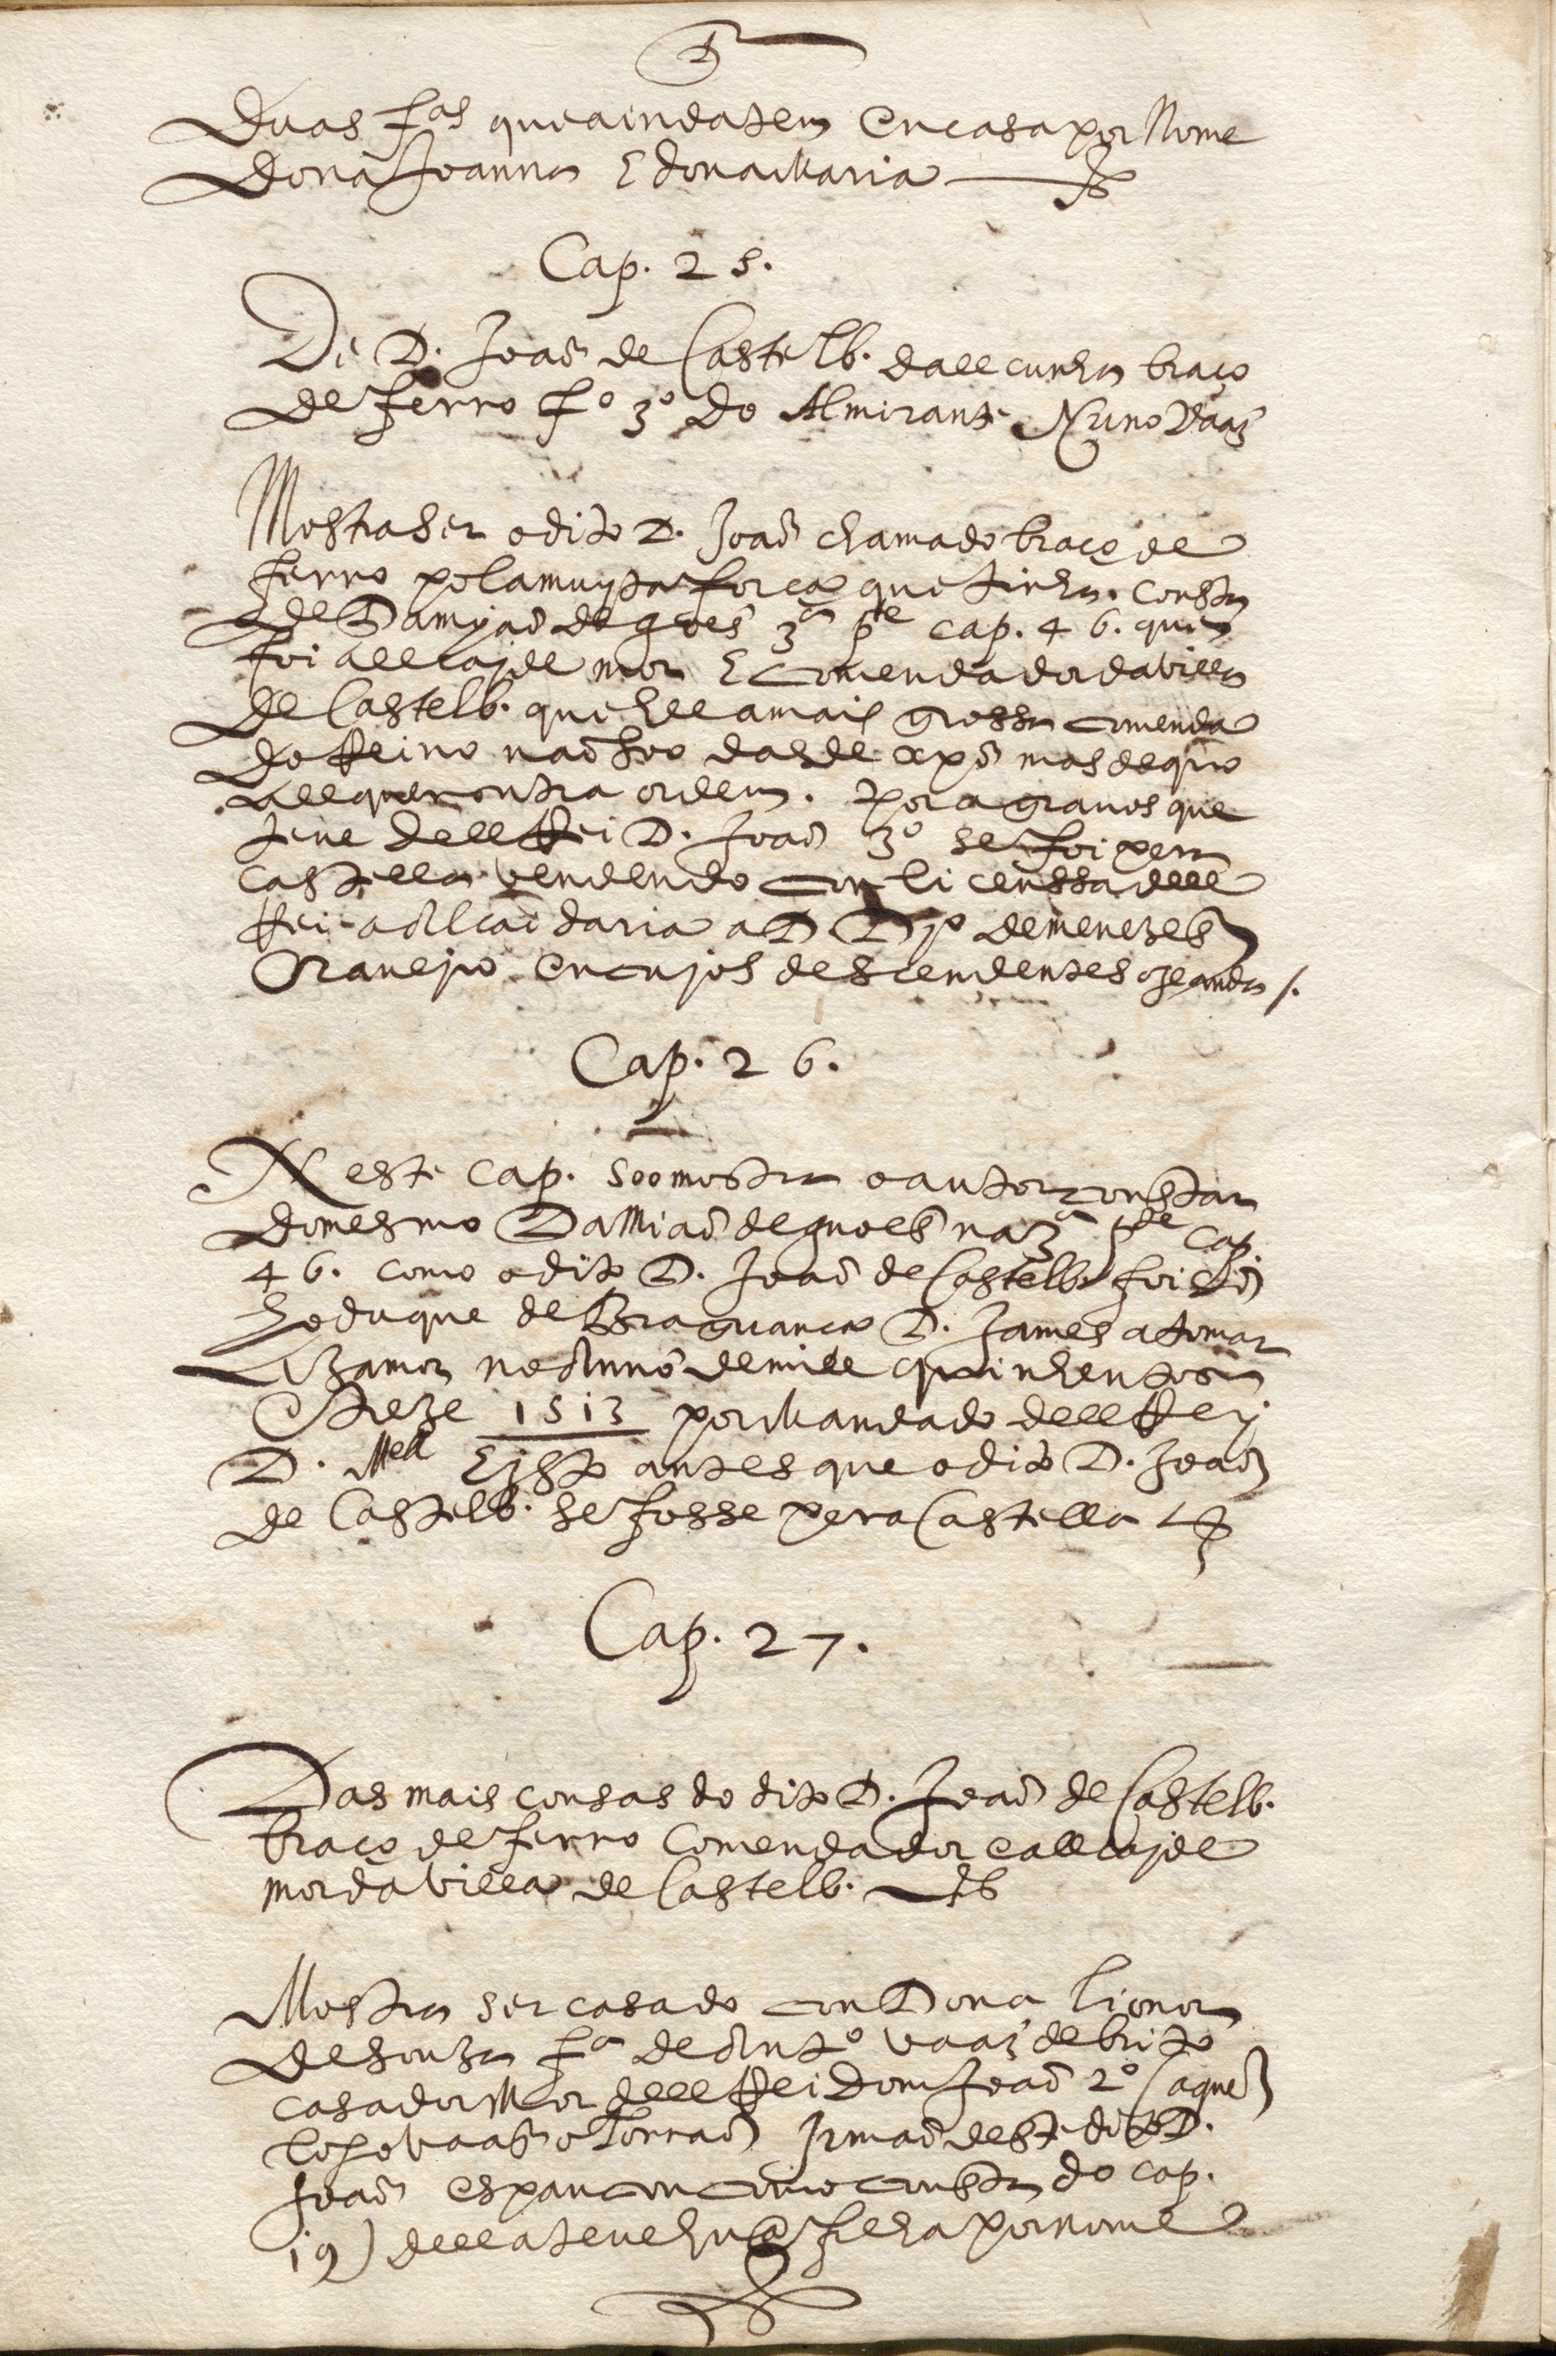 Duas fas que ainda tem en casa por Nome
Dona Joanna E dona Maria
Cap. 25.
De D. Joaõ de Castelb. dalcunha braço
de ferro fo 3o do Almirante Nuno Vaaz
Mostra ser o dito D. Joaõ chamado braço de
ferro pola muyta força que tinha. consta
de Damyaõ de goes 3a pte cap. 46. que
foi allcajde mor E comendador da villa
de Castelb. que hee a mais grossa comenda
do Reino naõ soo das de xpõ mas de que
allquer outra ordem. por agravos que
teve dell Rei D. Joaõ 3o se foi pera
castella vendendo con licenssa dell
Rei a Allcaidaria a D. Dyo de menezes
Craveiro en cujos descendentes oje anda /.
Cap. 26.
Neste cap. soo mostra o autor constar
do mesmo Damiaõ de guoes na 3a pte cap.
46. como o dito D. Joaõ de Castelb. foi cõ
ho duque de Braguança D. James a tomar
Azamor no Anno de mill quinhentos
E treze 1513 por Mandado dell Rey
D. Mel E isto antes que o dito D. Joaõ
de Castelb. se fosse pera Castella
Cap. 27.
Das mais cousas do dito D. Joaõ de Castelb.
braço de ferro Comendador e allcajde
mor da villa de Castelb.
Mostra ser casado con Dona lionor
de souza fa de Anto vaaz de brito
casador Mor dell Rei Dom Joaõ 2o (a quem
lopo vaaz o Torraõ Irmaõ deste dito D.
Joaõ espancou como consta do cap.
19) della teve hua filha por nome